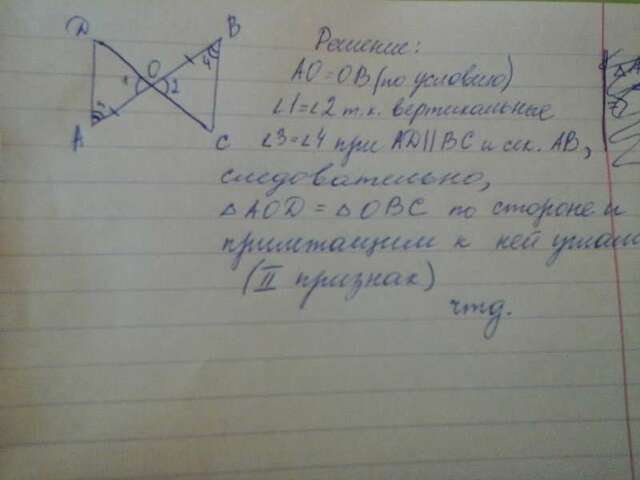 D
B
O
1
2
4
3
A
C
Решение:
AO=OB (по условию)
∠1=∠2 т.к. вертикальные
∠3=∠4 при AD||BC и сек. AB,
следовательно,
△AOD = △OBC по стороне и
прилежащим к ней углам
(II признак)
чтд.